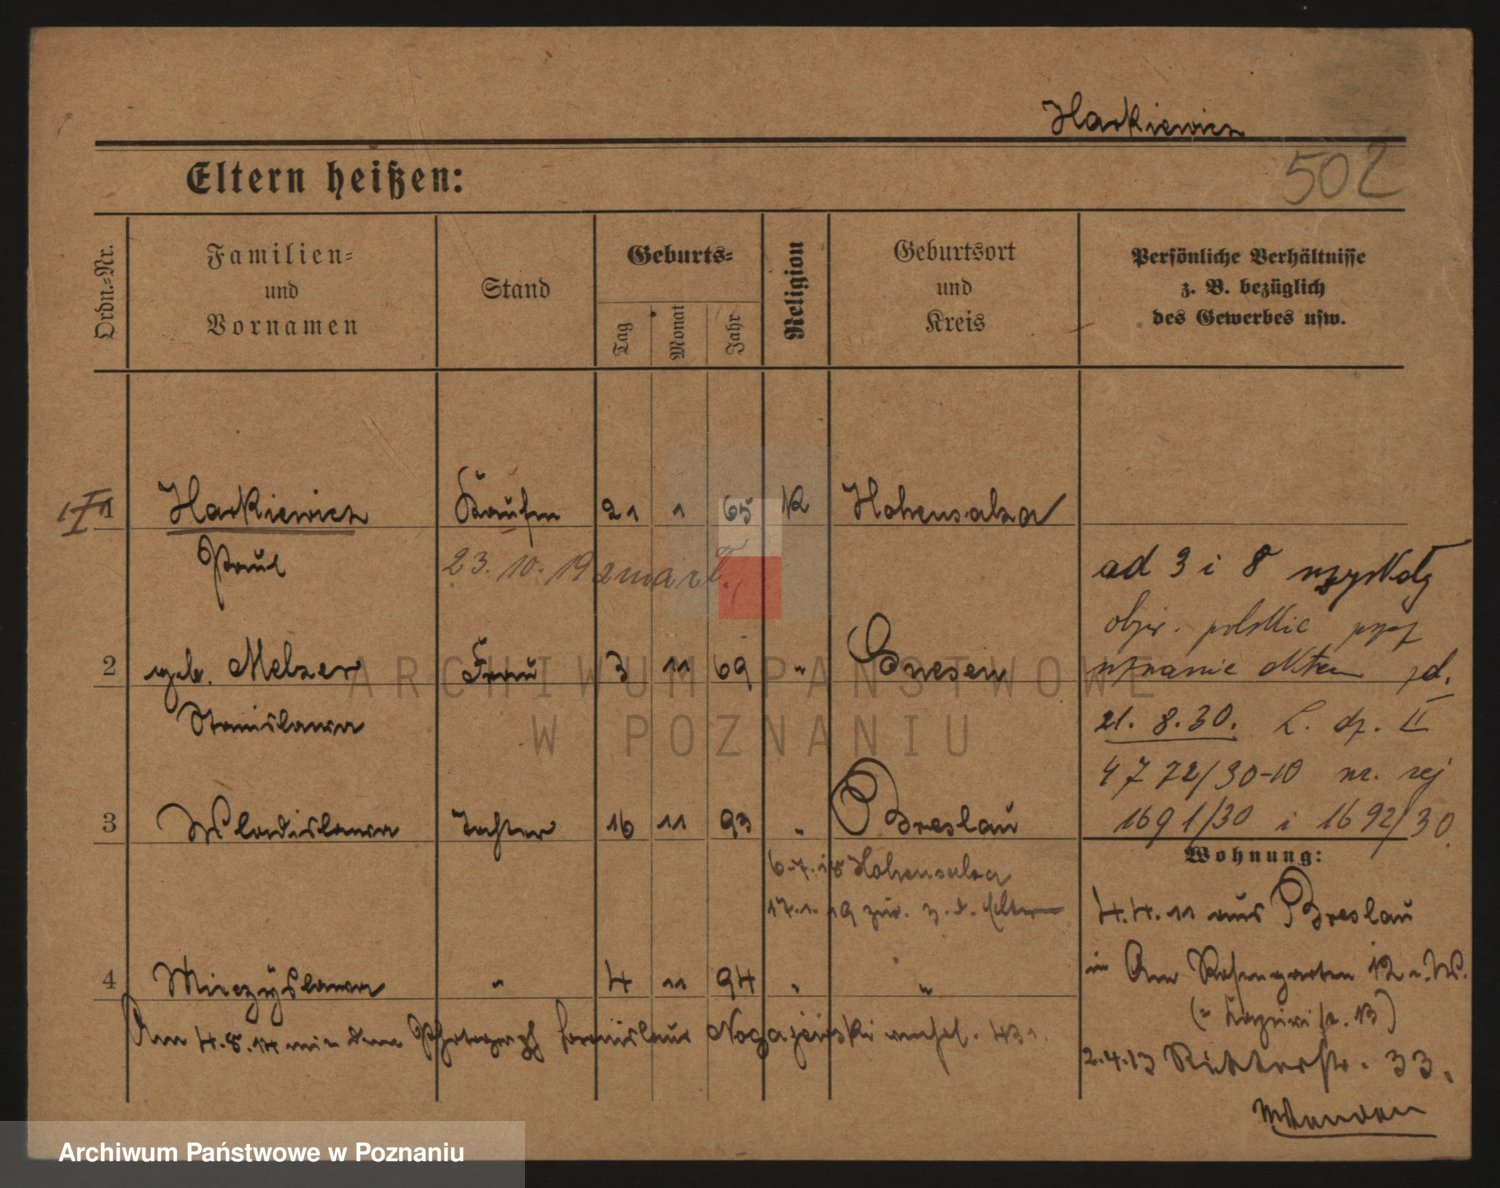 Harkiewicz
502
Eltern heißen:
Ordn.-Nr.
Familien-
und
Vornamen
Stand
Geburts-
Tag
Monat
Jahr
Religion
Geburtsort
und
Kreis
Persönliche Verhältnisse
z. B. bezüglich
des Gewerbes usw.
1 Harkiewicz Kaufm 21 1 65 K Hohensalza
Paul 23. 10. 19 zmarł.
ad 3 i 8 uzyskały
obyw. polskie przez
2 geb. Melzer Frau 3 11 69 " Gnesen
uznanie aktem z d.
Stanislawa
21. 8. 30. L. dz. II
4772/30-10 nr. rej
3 Wladislawa Tochter 16 11 93 " Breslau
1691/30 i 1692/30
Wohnung:
6.7.18 Hohensalza
17.1.19 zur. z. d. Eltern
4.4.11 aus Breslau
4 Mieczyslawa " 4 11 94 " "
in Am Rosengarten 12 b. W.
Am 4.8.14 mit dem Photograph Bronislaus Nogajewski verh.
2.4.13 Ritterstr. 33.
ARCHIWUM PAŃSTWOWE
W POZNANIU
Archiwum Państwowe w Poznaniu